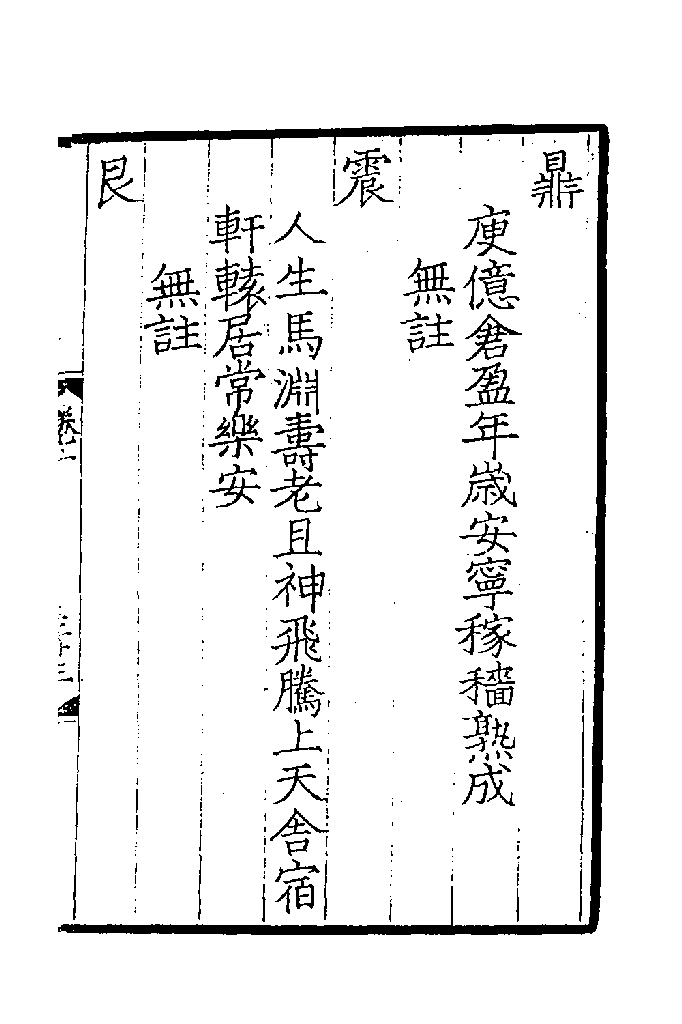 鼎
庾億倉盈年歲安寧稼穡熟成
無註
震
人生馬淵壽老且神飛騰上天舍宿
軒轅居常樂安
無註
艮